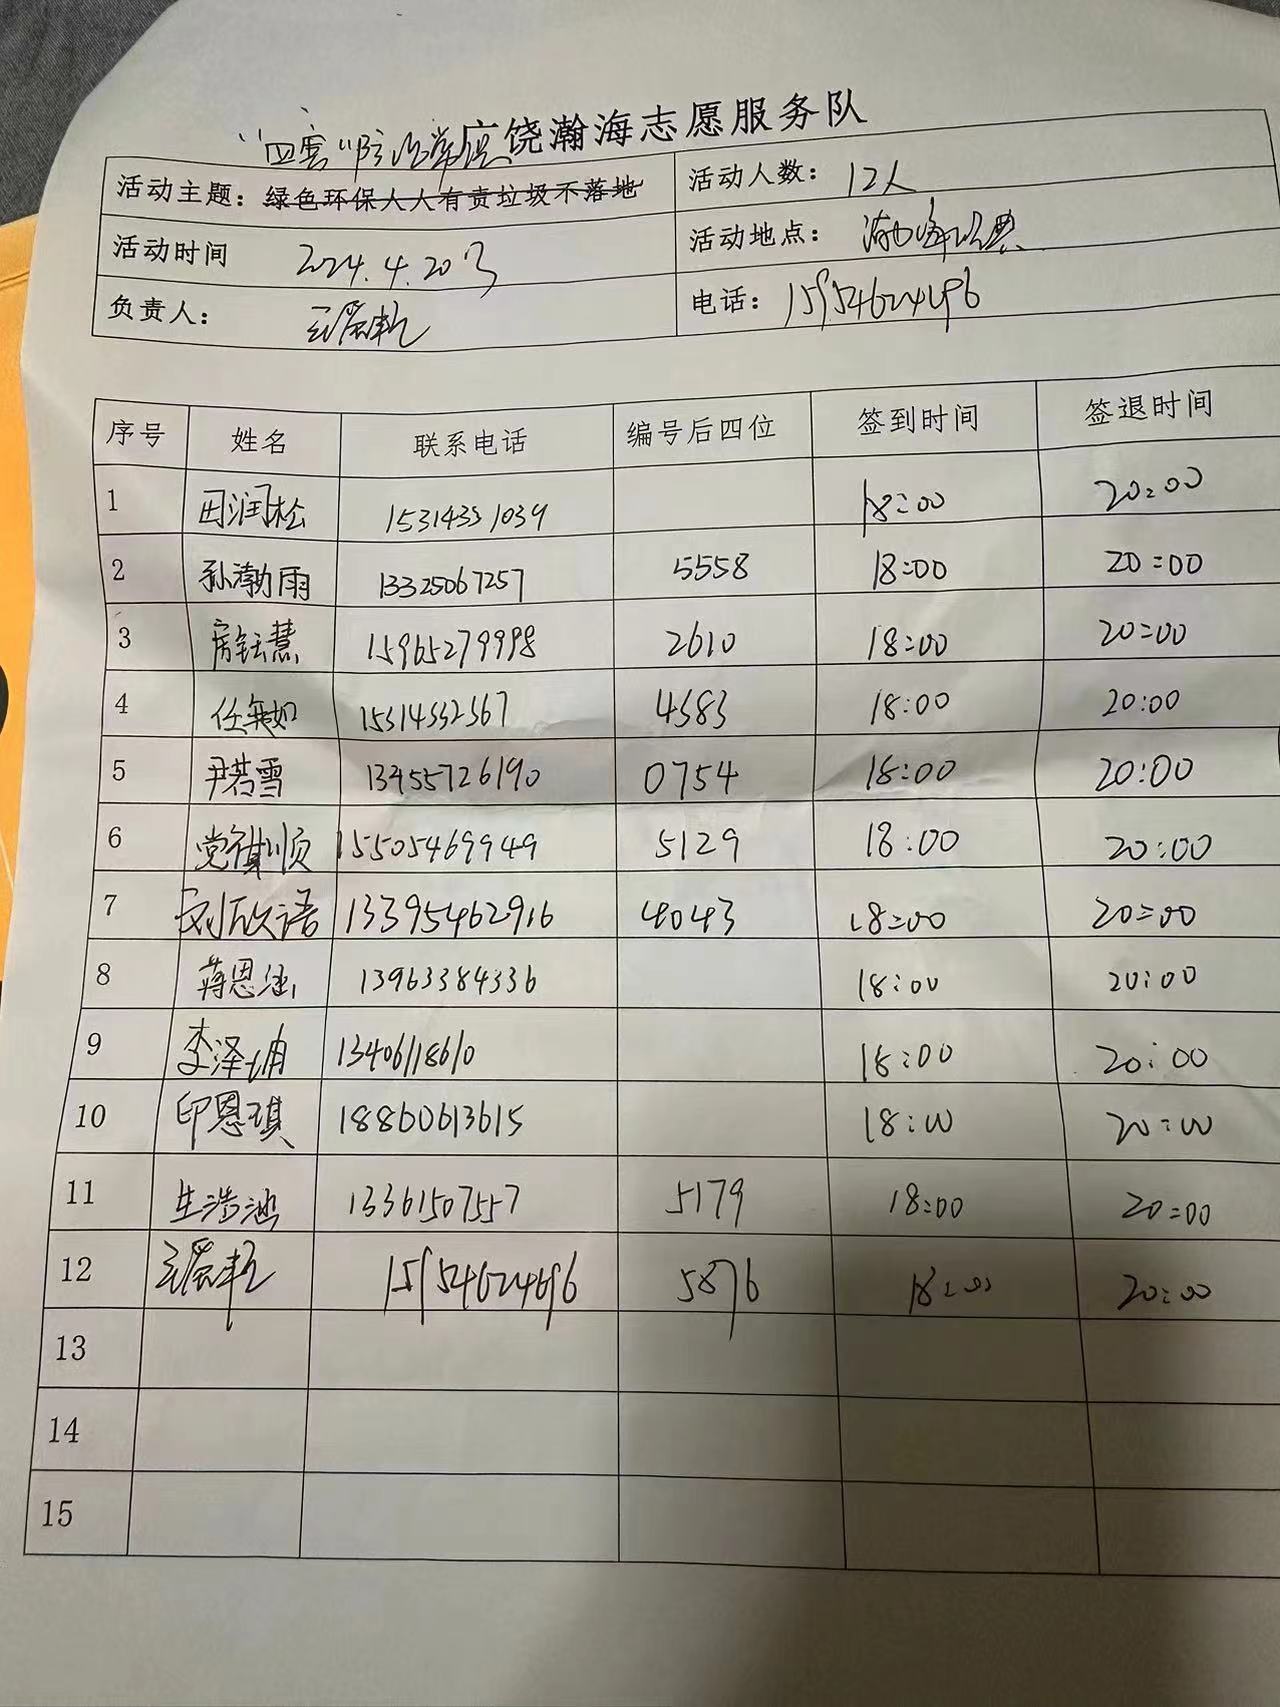 广饶瀚海志愿服务队
"四害"防治常识
活动主题：绿色环保人人有责垃圾不落地 活动人数：12人
活动时间 2024.4.20 活动地点：
负责人： 电话：15954624696
序号 姓名 联系电话 编号后四位 签到时间 签退时间
1 田润松 15314331039 18:00 20:00
2 孙渤雨 13325067257 5558 18:00 20:00
3 房钰慧 15965279998 2610 18:00 20:00
4 15314332367 4583 18:00 20:00
5 尹若雪 13455726190 0754 18:00 20:00
6 党祺顺 15505469949 5129 18:00 20:00
7 刘欣语 13395462916 4043 18:00 20:00
8 蒋恩涵 13963384336 18:00 20:00
9 李泽 13406118610 18:00 20:00
10 印恩琪 18860613615 18:00 20:00
11 生浩 13361507557 5179 18:00 20:00
12 15954624696 5876 18:00 20:00
13
14
15